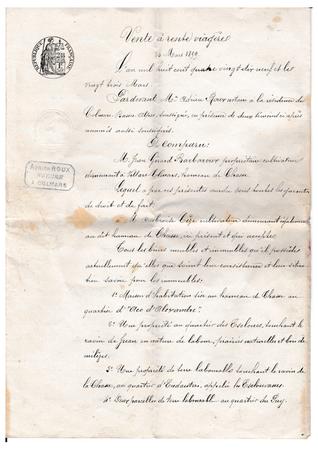 Vente à rente viagère
Mars 1899
L'an mil huit cent quatre vingt dix neuf et les
vingt trois Mars.
Pardevant Me Adrien Roux notaire à la résidence de
Colmars Basses Alpes soussigné, en présence de deux témoins ci après
nommés aussi soussignés.
A Comparu:
M. Jean Gérard propriétaire cultivateur
demeurant à Villars Colmars, hameau de Chasse
Lequel a par ces présentes vendu sous toutes les garanties
de droit et de fait.
A cultivateur demeurant également
au dit hameau de Chasse, ici présent et qui accepte
Tous les biens meubles et immeubles qu'il possède
actuellement quelles que soient leur consistance et leur situa
tion savoir pour les immeubles:
1° Maison d'habitation sise au hameau de Chasse au
quartier d'
2° Une propriété au quartier des touchant le
ravin de en nature de labour, prairies naturelles et bois de
mélèzes.
3° Une propriété de terre labourable touchant le ravin de
la Chasse, au quartier d' appelée
4° Deux parcelles de terre labourable au quartier du Puy
RÉPUBLIQUE FRANÇAISE
ADRIEN ROUX
NOTAIRE
A COLMARS